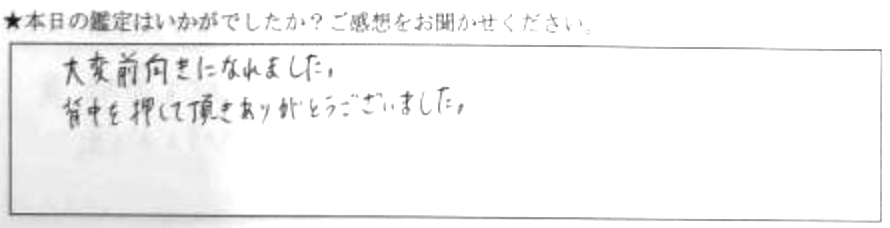 ★本日の鑑定はいかがでしたか？ご感想をお聞かせください。
大変前向きになれました。
背中を押して頂きありがとうございました。